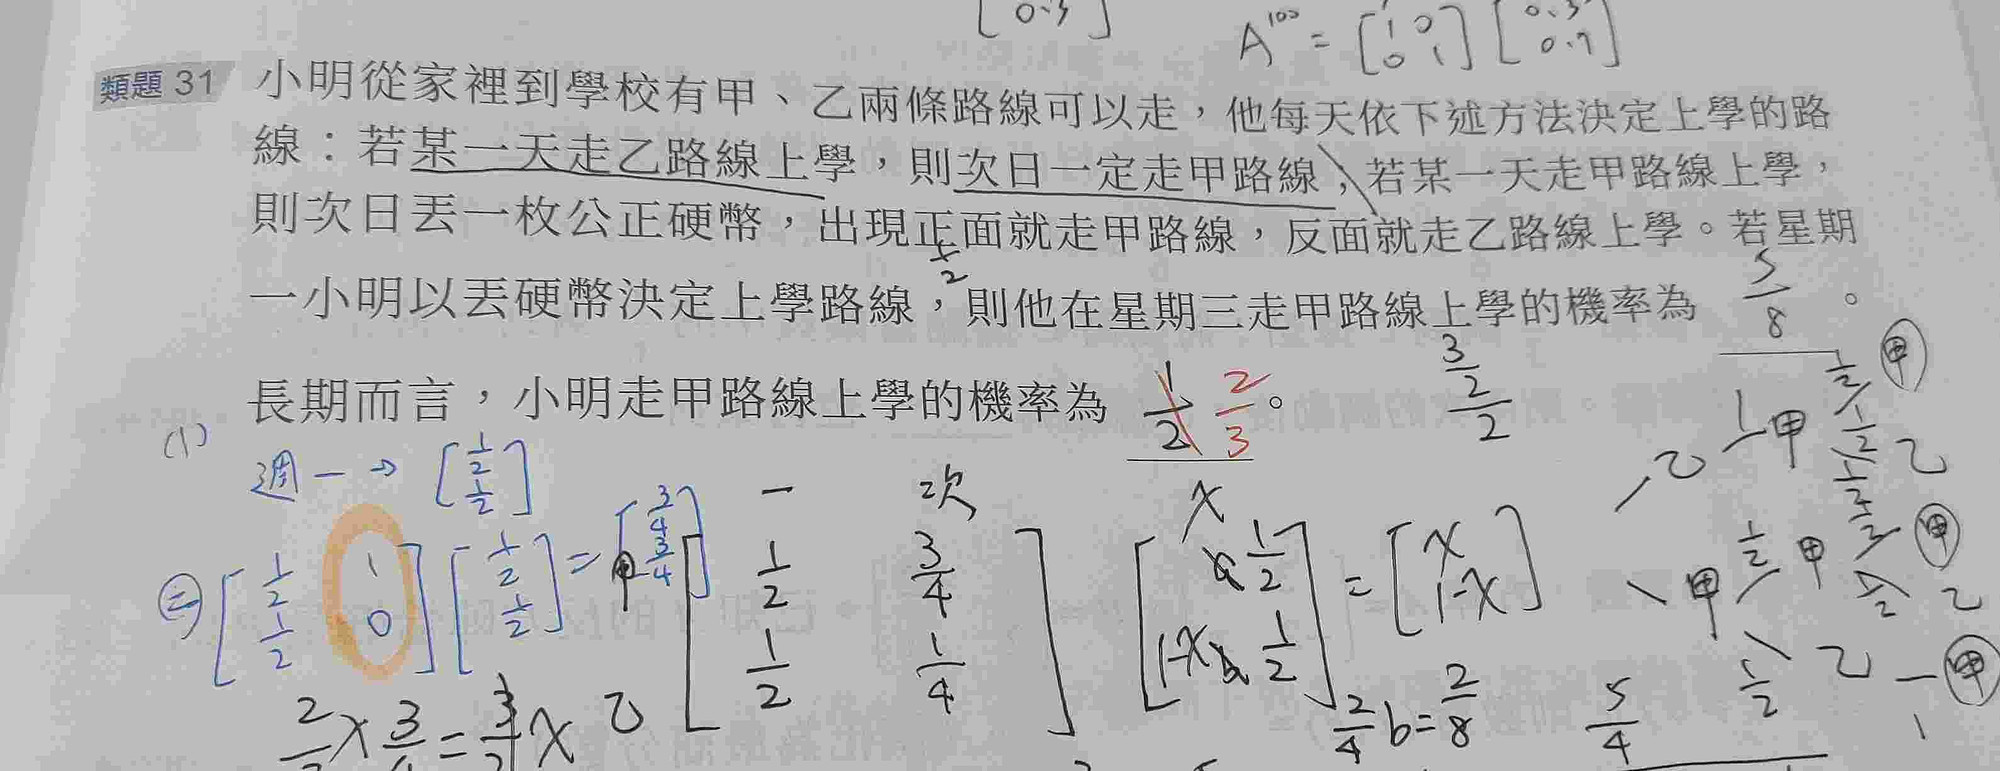 [0.3]
A¹⁰⁰ = [1 0 0 1] [0.3 0.7]
類題 31 小明從家裡到學校有甲、乙兩條路線可以走，他每天依下述方法決定上學的路
線：若某一天走乙路線上學，則次日一定走甲路線；若某一天走甲路線上學，
則次日丟一枚公正硬幣，出現正面就走甲路線，反面就走乙路線上學。若星期
一小明以丟硬幣決定上學路線，則他在星期三走甲路線上學的機率為 5/8 。
1/2
長期而言，小明走甲路線上學的機率為 1/2 2/3 。
3/2/2
(1)
週一 → [1/2 1/2]
[1/2 1 1/2 0] [1/2 1/2] = [3/4 3/4]
一 次
甲 1/2 3/4
乙 1/2 1/4
x
[a 1/2 1-x b 1/2] = [x 1-x]
2/4 b = 2/8
5/4
乙 1 甲 1/2 甲
1/2 乙
甲 1/2 甲 1/2 甲
1/2 乙
1/2 乙 1 甲